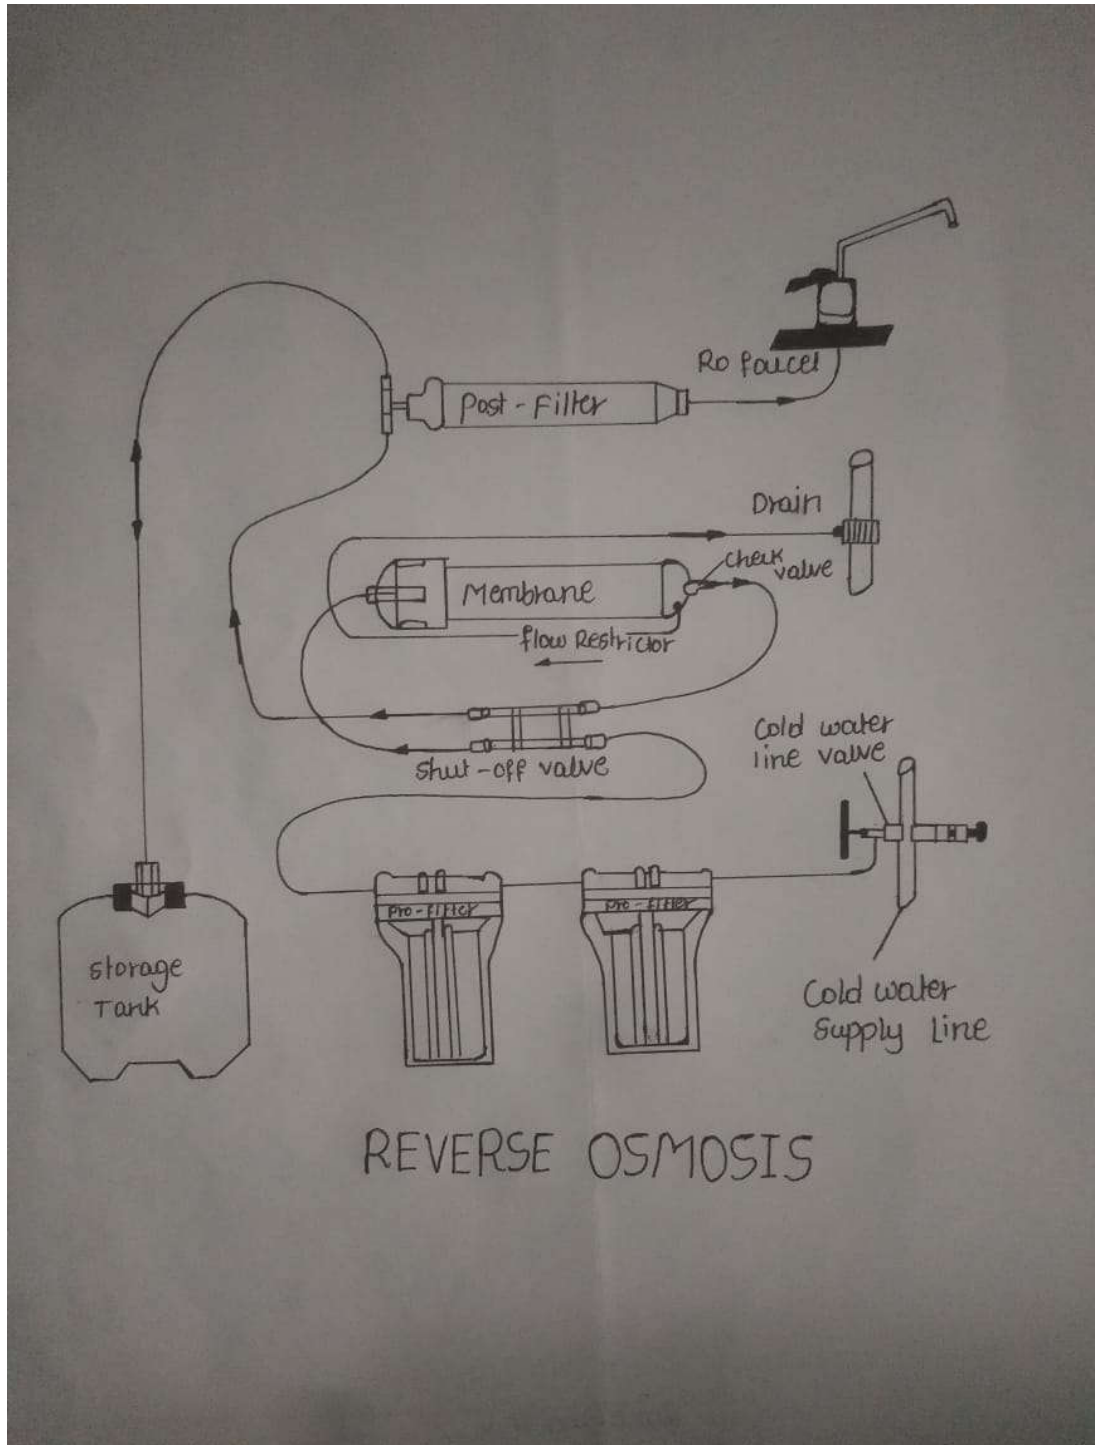 Ro faucet
Post - Filter
Drain
Check
valve
Membrane
flow Restrictor
Shut-off valve
Cold water
line valve
Pro-filter
Pro-filter
Storage
Tank
Cold water
Supply Line
REVERSE OSMOSIS